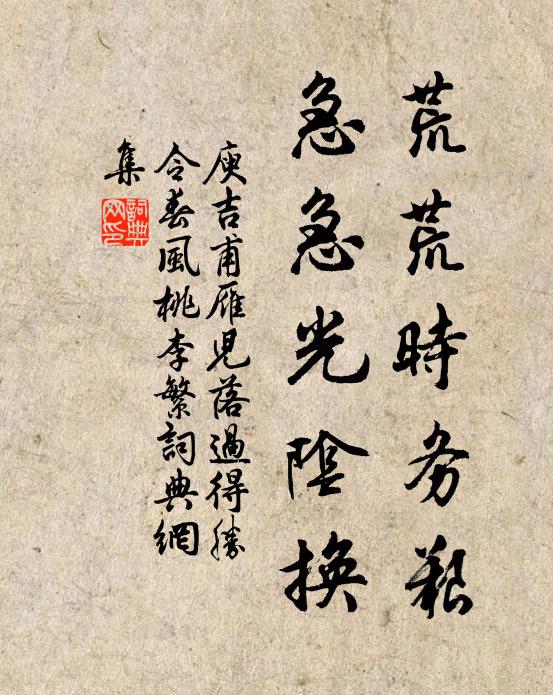 荒荒時务艱
急急光陰換
庾吉甫雁兒落過得勝
令春風桃李繁詞典網
集
詞典
网印